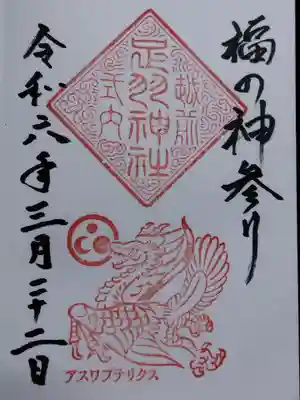 福の神参り
越前
足羽神社
式内
令和六年三月二十二日
アスワプテリクス